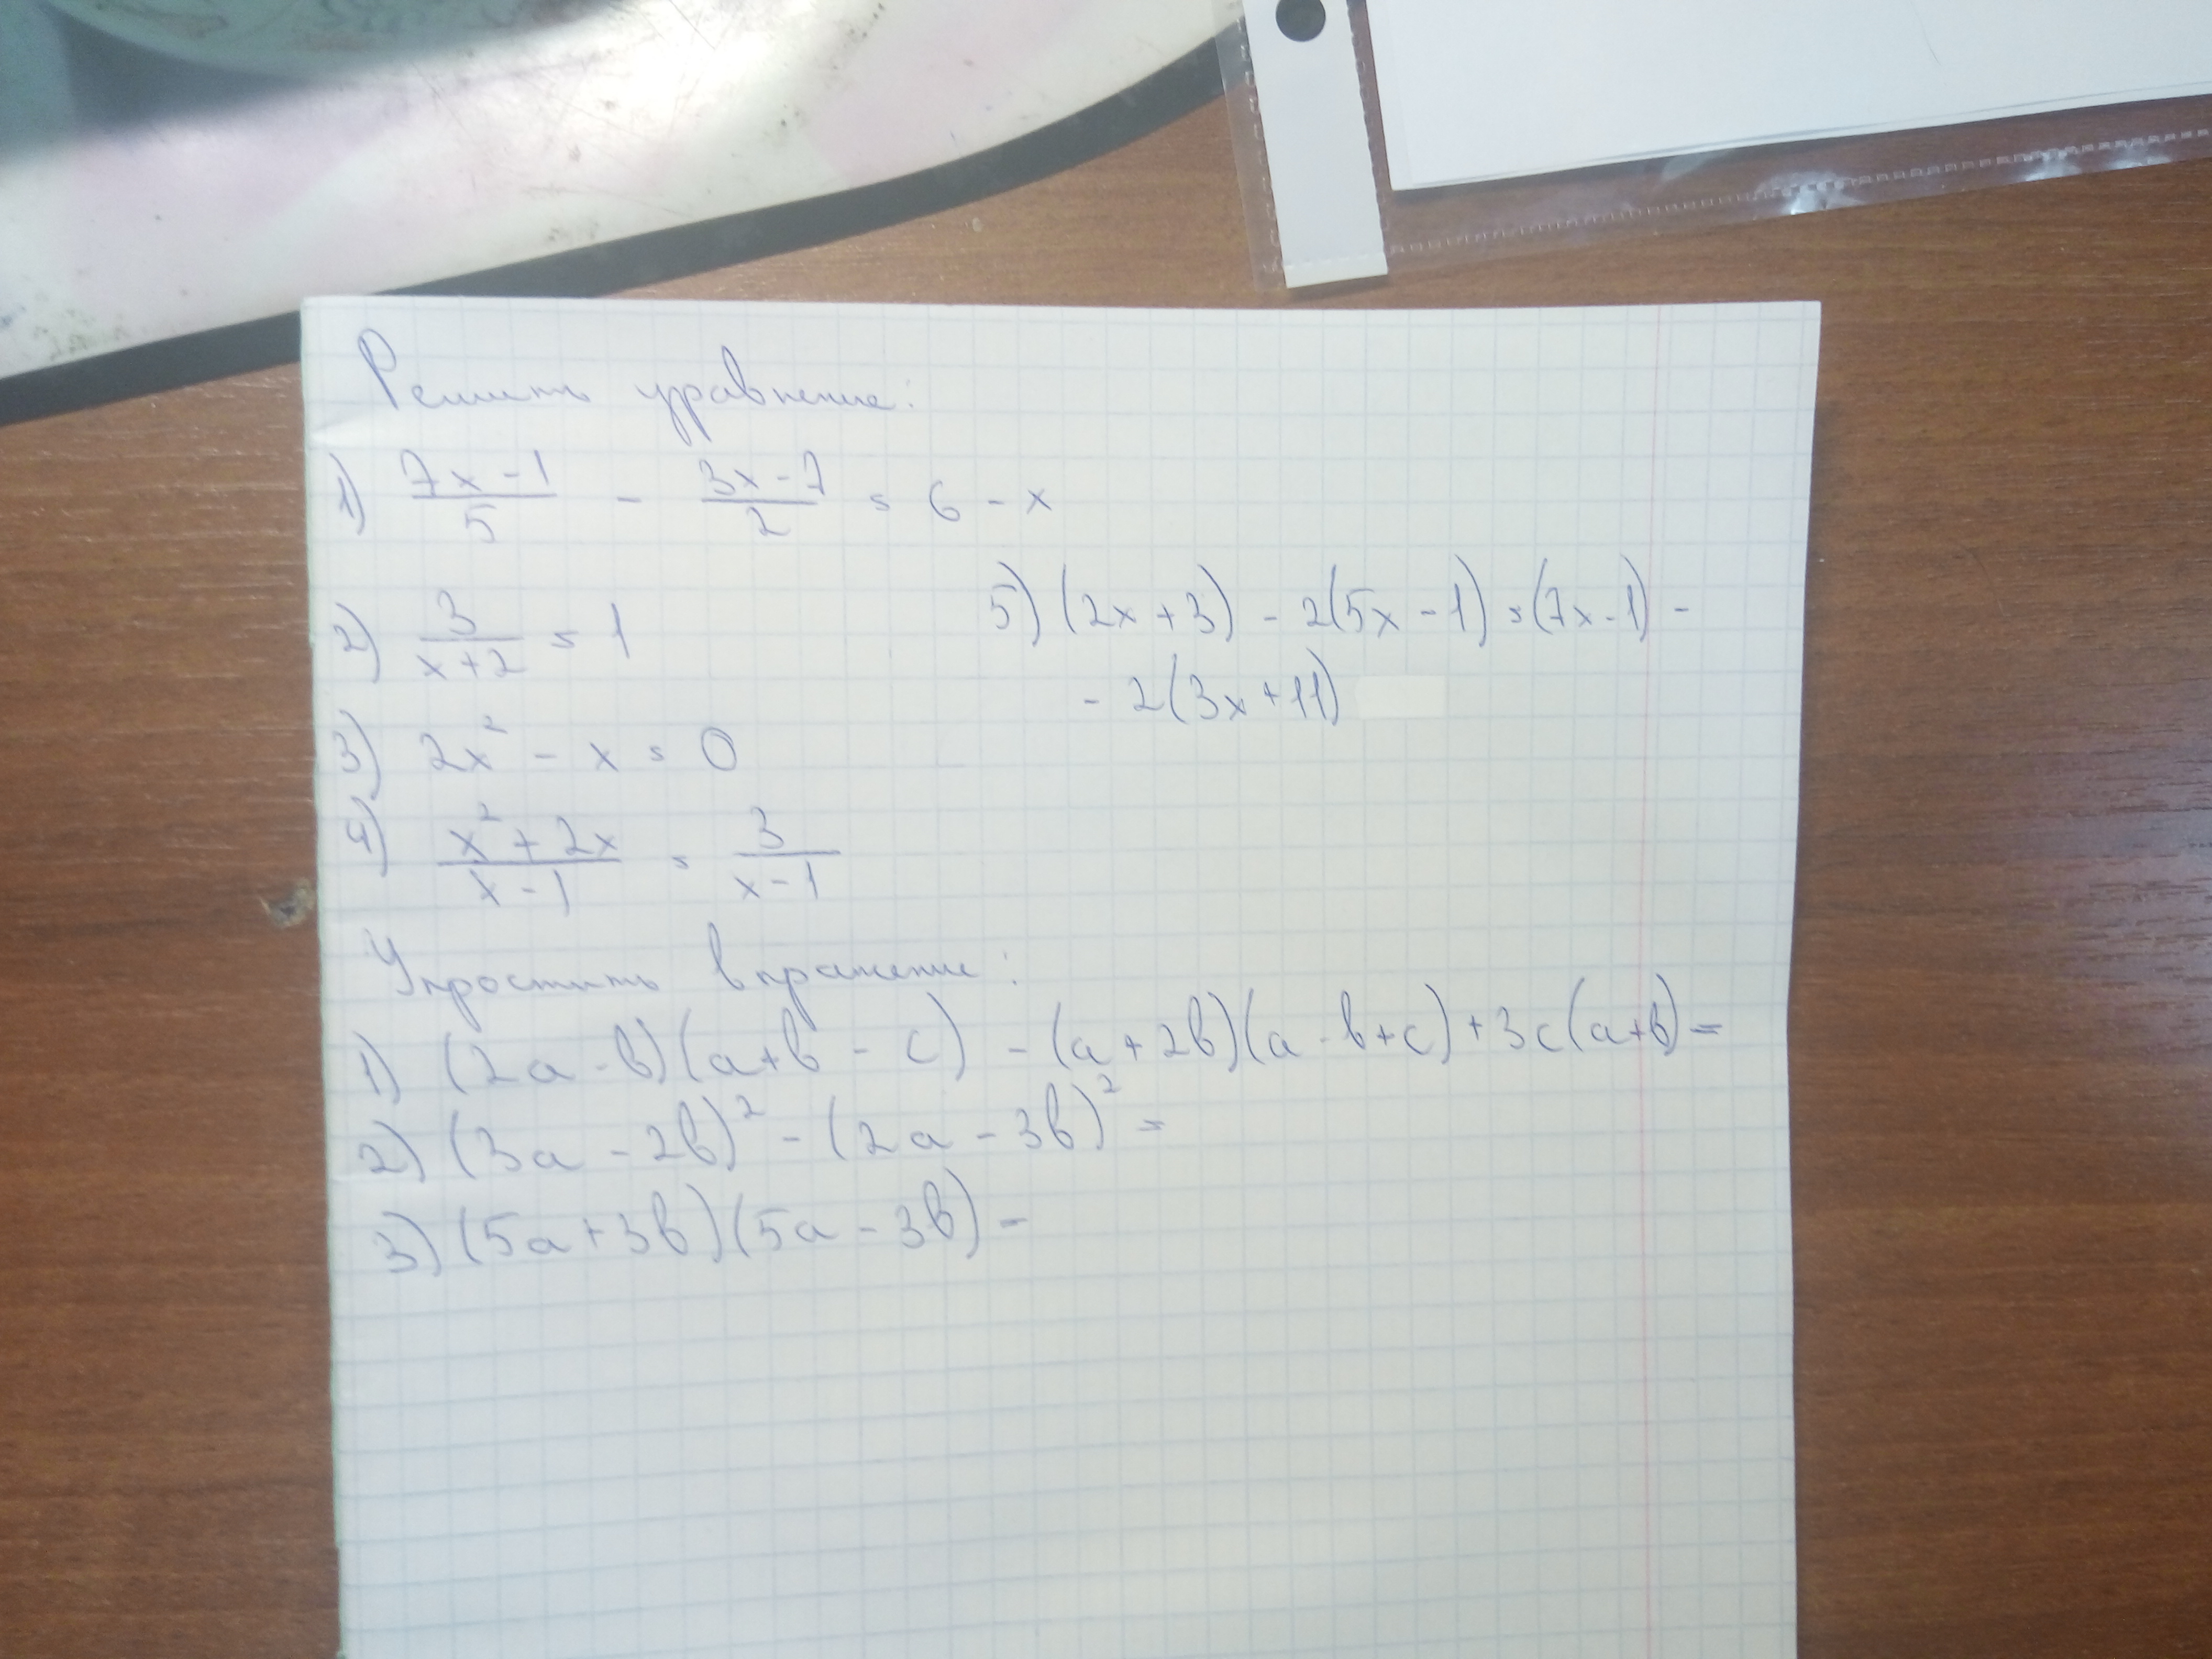 Решить уравнение:
1) (7x-1)/5 - (3x-7)/2 = 6 - x
2) 3/(x+2) = 1
5) (2x+3) - 2(5x-1) = (7x-1) -
- 2(3x+11)
3) 2x² - x = 0
4) (x²+2x)/(x-1) = 3/(x-1)
Упростить выражение:
1) (2a-b)(a+b-c) - (a+2b)(a-b+c)+3c(a+b)=
2) (3a-2b)² - (2a-3b)² =
3) (5a+3b)(5a-3b) =